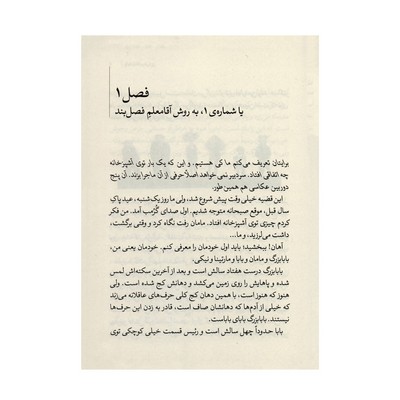 فصل ۱
یا شماره‌ی ۱، به روش آقامعلمِ فصل‌بند
برایتان تعریف می‌کنم ما کی هستیم. و این که یک بار توی آشپزخانه
چه اتفاقی افتاد. سردبیر نمی‌خواهد اصلاً حرفی از آن ماجرا بزند. آن پنج
دوربین عکاسی هم همین‌طور.
این قضیه خیلی وقت پیش شروع شد، ولی ما روز یک‌شنبه، عید پاکِ
سال قبل، موقع صبحانه متوجه شدیم. اول صدای گُرُمب آمد. من فکر
کردم چیزی توی آشپزخانه افتاد. مامان رفت نگاه کرد و وقتی برگشت،
داشت می‌لرزید، و ما...
آهان! ببخشید؛ باید اول خودمان را معرفی کنم. خودمان یعنی من،
بابابزرگ و مامان و بابا و مارتینا و نیکی.
بابابزرگ درست هفتاد سالش است و بعد از آخرین سکته‌اش لمس
شده و پاهایش را روی زمین می‌کشد و دهانش کج شده است. ولی
هنوز که هنوز است، با همین دهان کج کلی حرف‌های عاقلانه می‌زند
که خیلی از آدم‌ها که دهانشان صاف است، قادر به زدن این حرف‌ها
نیستند. بابابزرگ بابای باباست.
بابا حدوداً چهل سالش است و رئیس قسمت خیلی کوچکی توی